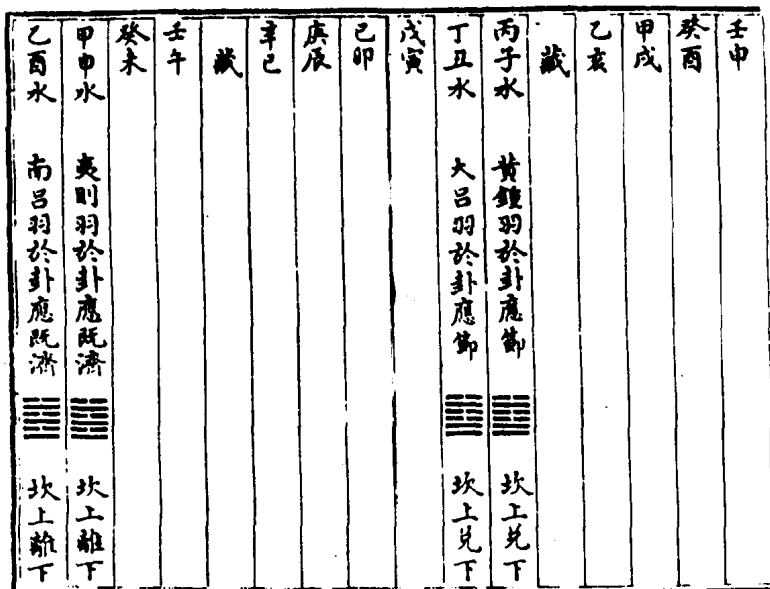 壬申
癸酉
甲戌
乙亥
藏
丙子水 黄鐘羽於卦應節 坎上兑下
丁丑水 大吕羽於卦應節 坎上兑下
戊寅
己卯
庚辰
辛巳
藏
壬午
癸未
甲申水 夷則羽於卦應既濟 坎上離下
乙酉水 南吕羽於卦應既濟 坎上離下